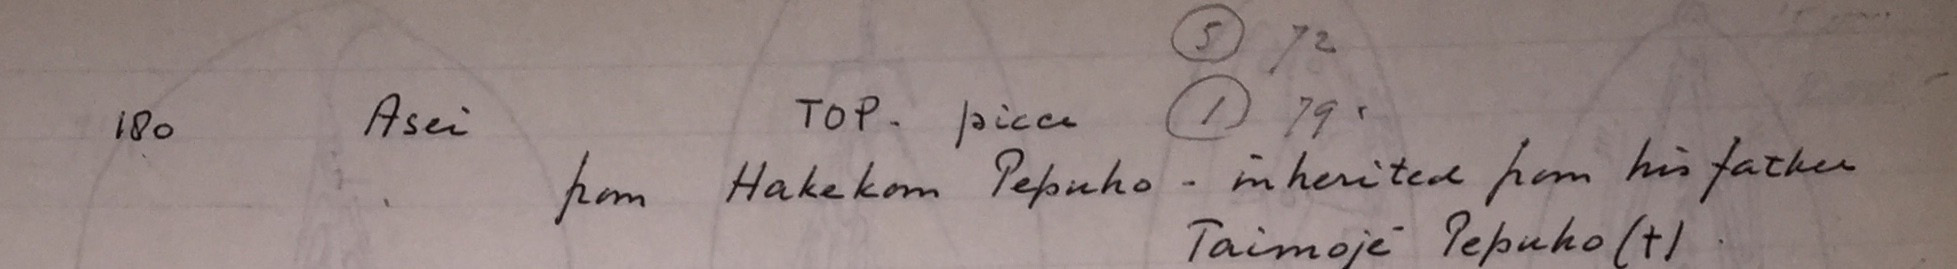 ⑤ 72
180 Asei TOP. piece ① 79.
from Hakekom Pepuho - inherited from his father
Taimojé Pepuho (†).